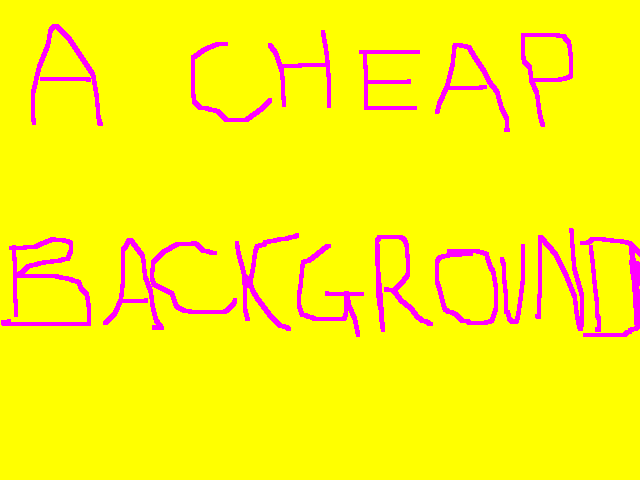 A CHEAP
BACKGROUND